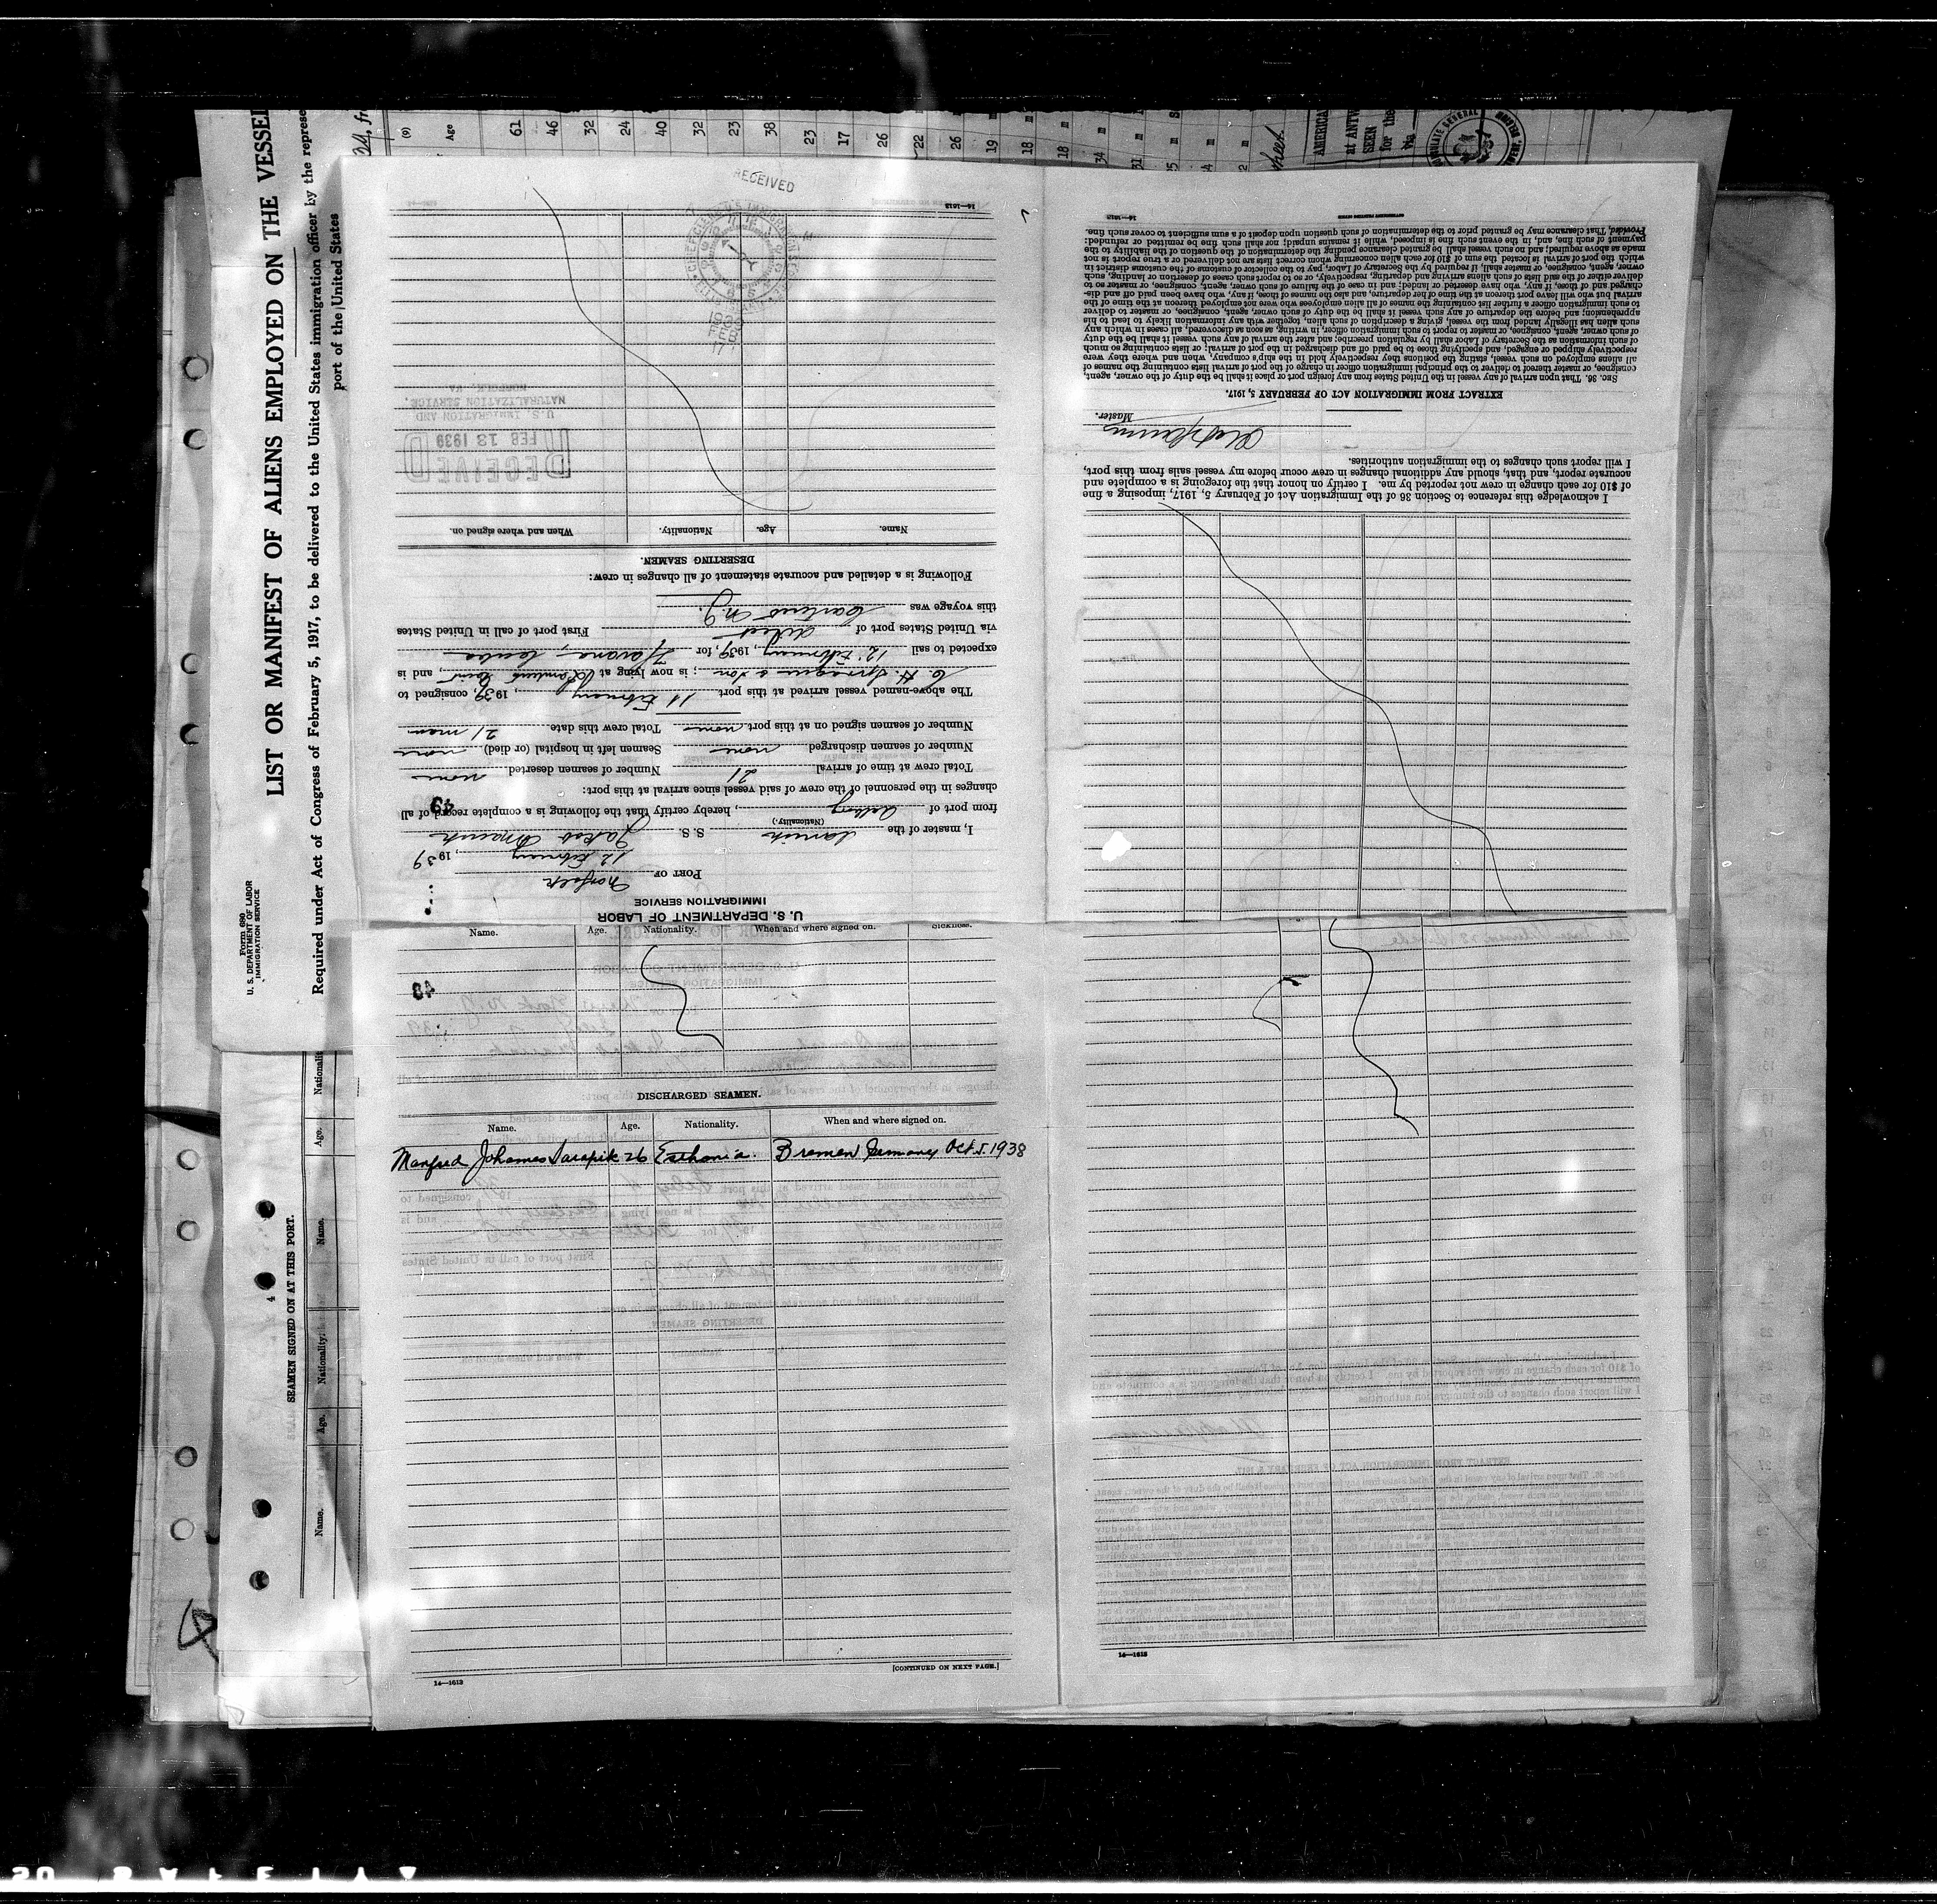 LIST OR MANIFEST OF ALIENS EMPLOYED ON THE VESSEL
Required under Act of Congress of February 5, 1917, to be delivered to the United States immigration officer by the represe
port of the United States
Form 680
U. S. DEPARTMENT OF LABOR
IMMIGRATION SERVICE
(9)
Age
61
46
32
24
40
32
23
38
23
17
26
22
26
19
18
18
34
AMERICA
at ANTW
SEEN
for the
RECEIVED
U. S. DEPARTMENT OF LABOR
IMMIGRATION SERVICE
PORT OF Norfolk
12 February, 1939
I, master of the Danish S. S. Jakob Maersk
(Nationality.)
from port of, hereby certify that the following is a complete record of all
49
changes in the personnel of the crew of said vessel since arrival at this port:
Total crew at time of arrival 21 Number of seamen deserted none
Number of seamen discharged none Seamen left in hospital (or died) none
Number of seamen signed on at this port none Total crew this date 21 men
The above-named vessel arrived at this port 11 February, 1939, consigned to
C H Sprague & Son; is now lying at Lamberts Point, and is
expected to sail 12' February, 1939, for Havana, Cuba
via United States port of direct First port of call in United States
this voyage was Carteret N.J.
Following is a detailed and accurate statement of all changes in crew:
DESERTING SEAMEN.
Name. Age. Nationality. When and where signed on.
RECEIVED
FEB 13 1939
U.S. IMMIGRATION AND
NATURALIZATION SERVICE,
NORFOLK, VA.
14—1613
I acknowledge this reference to Section 36 of the Immigration Act of February 5, 1917, imposing a fine
of $10 for each change in crew not reported by me. I certify on honor that the foregoing is a complete and
accurate report, and that, should any additional changes in crew occur before my vessel sails from this port,
I will report such changes to the immigration authorities.
Master.
EXTRACT FROM IMMIGRATION ACT OF FEBRUARY 5, 1917.
SEC. 36. That upon arrival of any vessel in the United States from any foreign port or place it shall be the duty of the owner, agent,
consignee, or master thereof to deliver to the principal immigration officer in charge of the port of arrival lists containing the names of
all aliens employed on such vessel, stating the position they respectively hold in the ship's company, when and where they were
respectively shipped or engaged, and specifying those to be paid off and discharged in the port of arrival; or lists containing so much
of such information as the Secretary of Labor shall by regulation prescribe; and after the arrival of any such vessel it shall be the duty
of such owner, agent, consignee, or master to report to such immigration officer, in writing, as soon as discovered, all cases in which any
such alien has illegally landed from the vessel, giving a description of such alien, together with any information likely to lead to his
apprehension; and before the departure of any such vessel it shall be the duty of such owner, agent, consignee, or master to deliver
to such immigration officer a further list containing the names of all alien employees who were not employed thereon at the time of the
arrival but who will leave port thereon at the time of her departure, and also the names of those, if any, who have been paid off and dis-
charged and of those, if any, who have deserted or landed; and in case of the failure of such owner, agent, consignee, or master so to
deliver either of the said lists of such aliens arriving and departing, respectively, or so to report such cases of desertion or landing, such
owner, agent, consignee, or master, shall, if required by the Secretary of Labor, pay to the collector of customs of the customs district in
which the port of arrival is located the sum of $10 for each alien concerning whom correct lists are not delivered or a true report is not
made as above required; and no such vessel shall be granted clearance pending the determination of the question of the liability to the
payment of such fine, and, in the event such fine is imposed, while it remains unpaid; nor shall such fine be remitted or refunded:
Provided, That clearance may be granted prior to the determination of such question upon deposit of a sum sufficient to cover such fine.
14—1613
Name. Age. Nationality. When and where signed on. Sickness.
48
DISCHARGED SEAMEN.
Name. Age. Nationality. When and where signed on.
Manfred Johannes Sarapik 26 Esthonia. Bremen Germany Oct. 5. 1938
[CONTINUED ON NEXT PAGE.]
14—1613
14—1613
SEAMEN SIGNED ON AT THIS PORT.
Name. Age. Nationality. Name. Age.
4